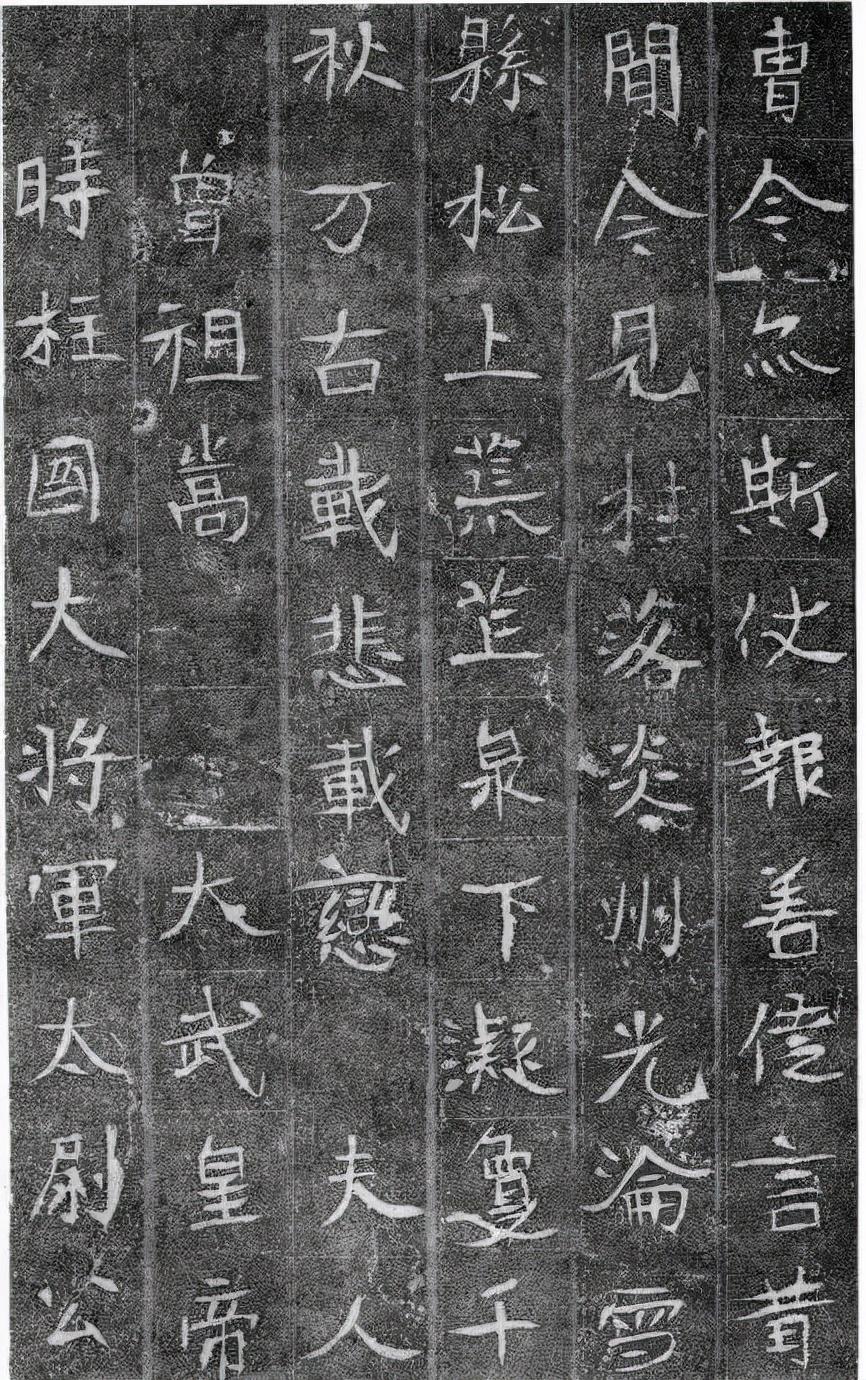 曹令尒斯仗報善言昔
聞今見桂落炎州光淪雪
縣松上荒芷泉下凝夐千
秋万古載悲載戀夫人
曾祖嵩大武皇帝
時柱國大将軍太尉公